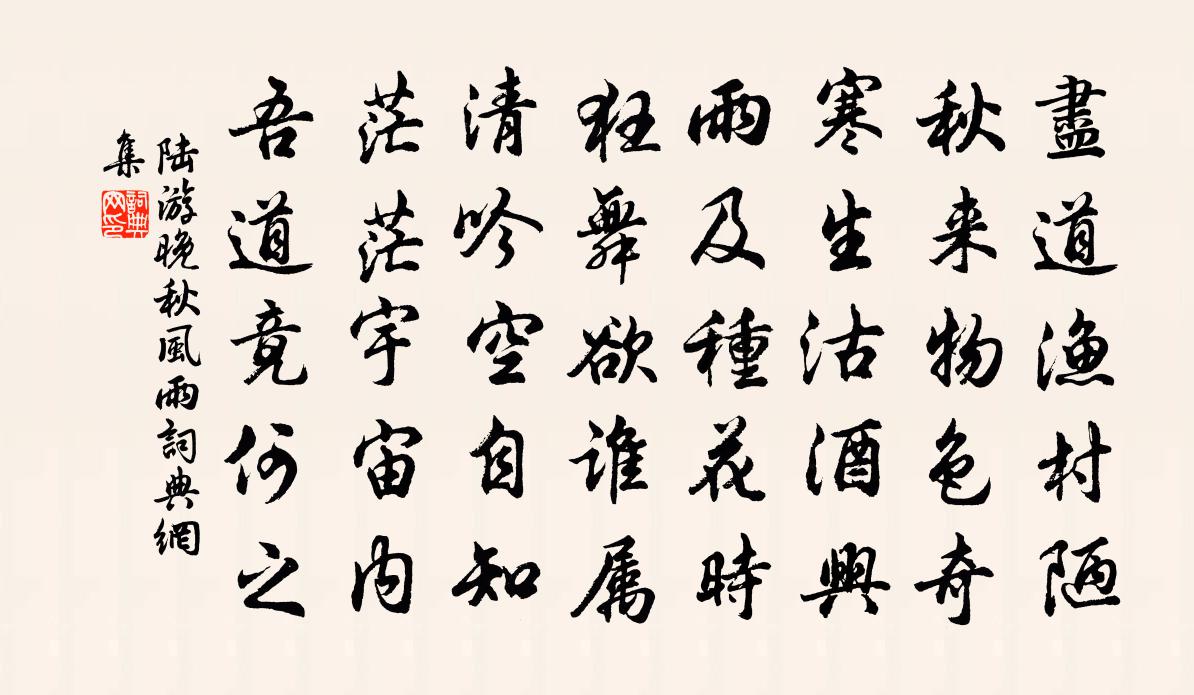 盡道漁村陋
秋来物色奇
寒生沽酒興
雨及種花時
狂舞欲誰属
清吟空自知
茫茫宇宙内
吾道竟何之
陆游晚秋風雨詞典網
集
詞典
网印